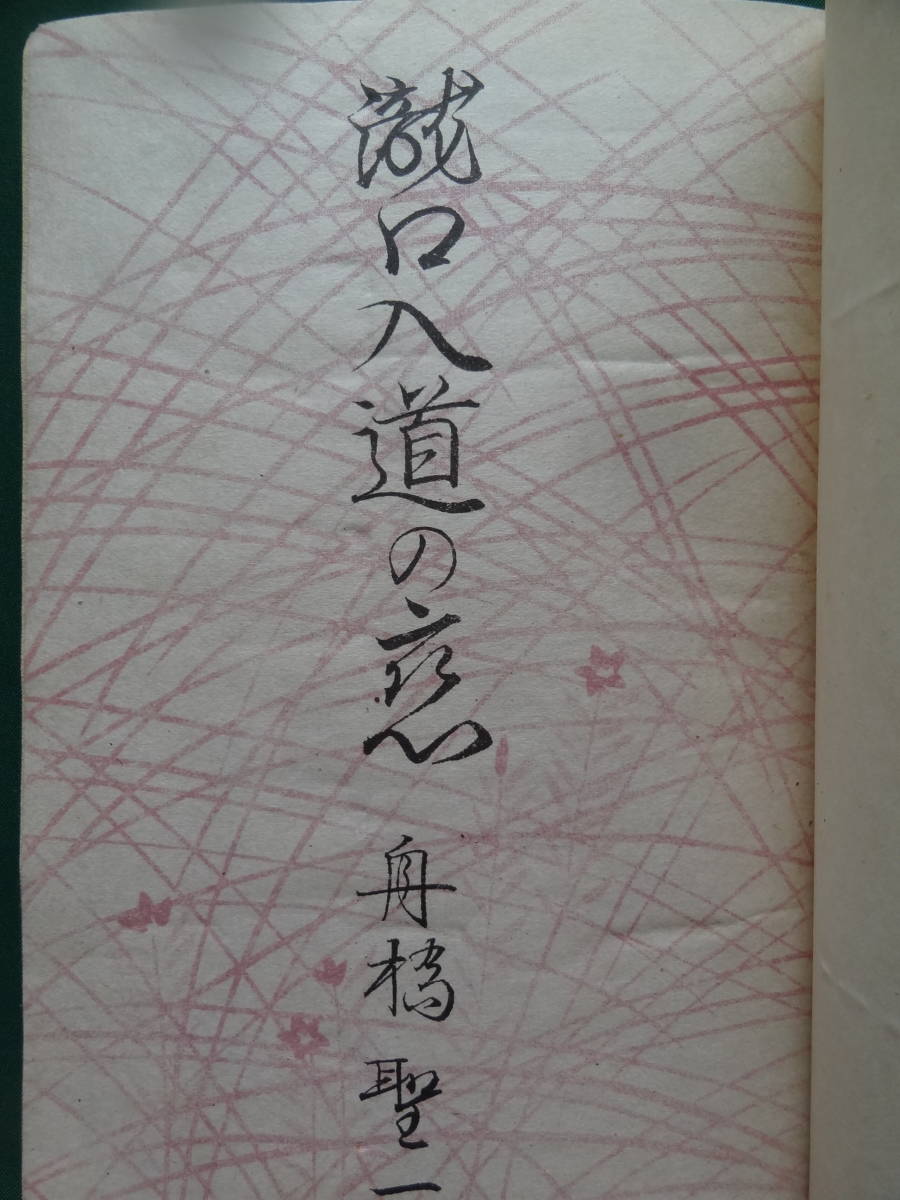 瀧口入道の恋
舟橋聖一